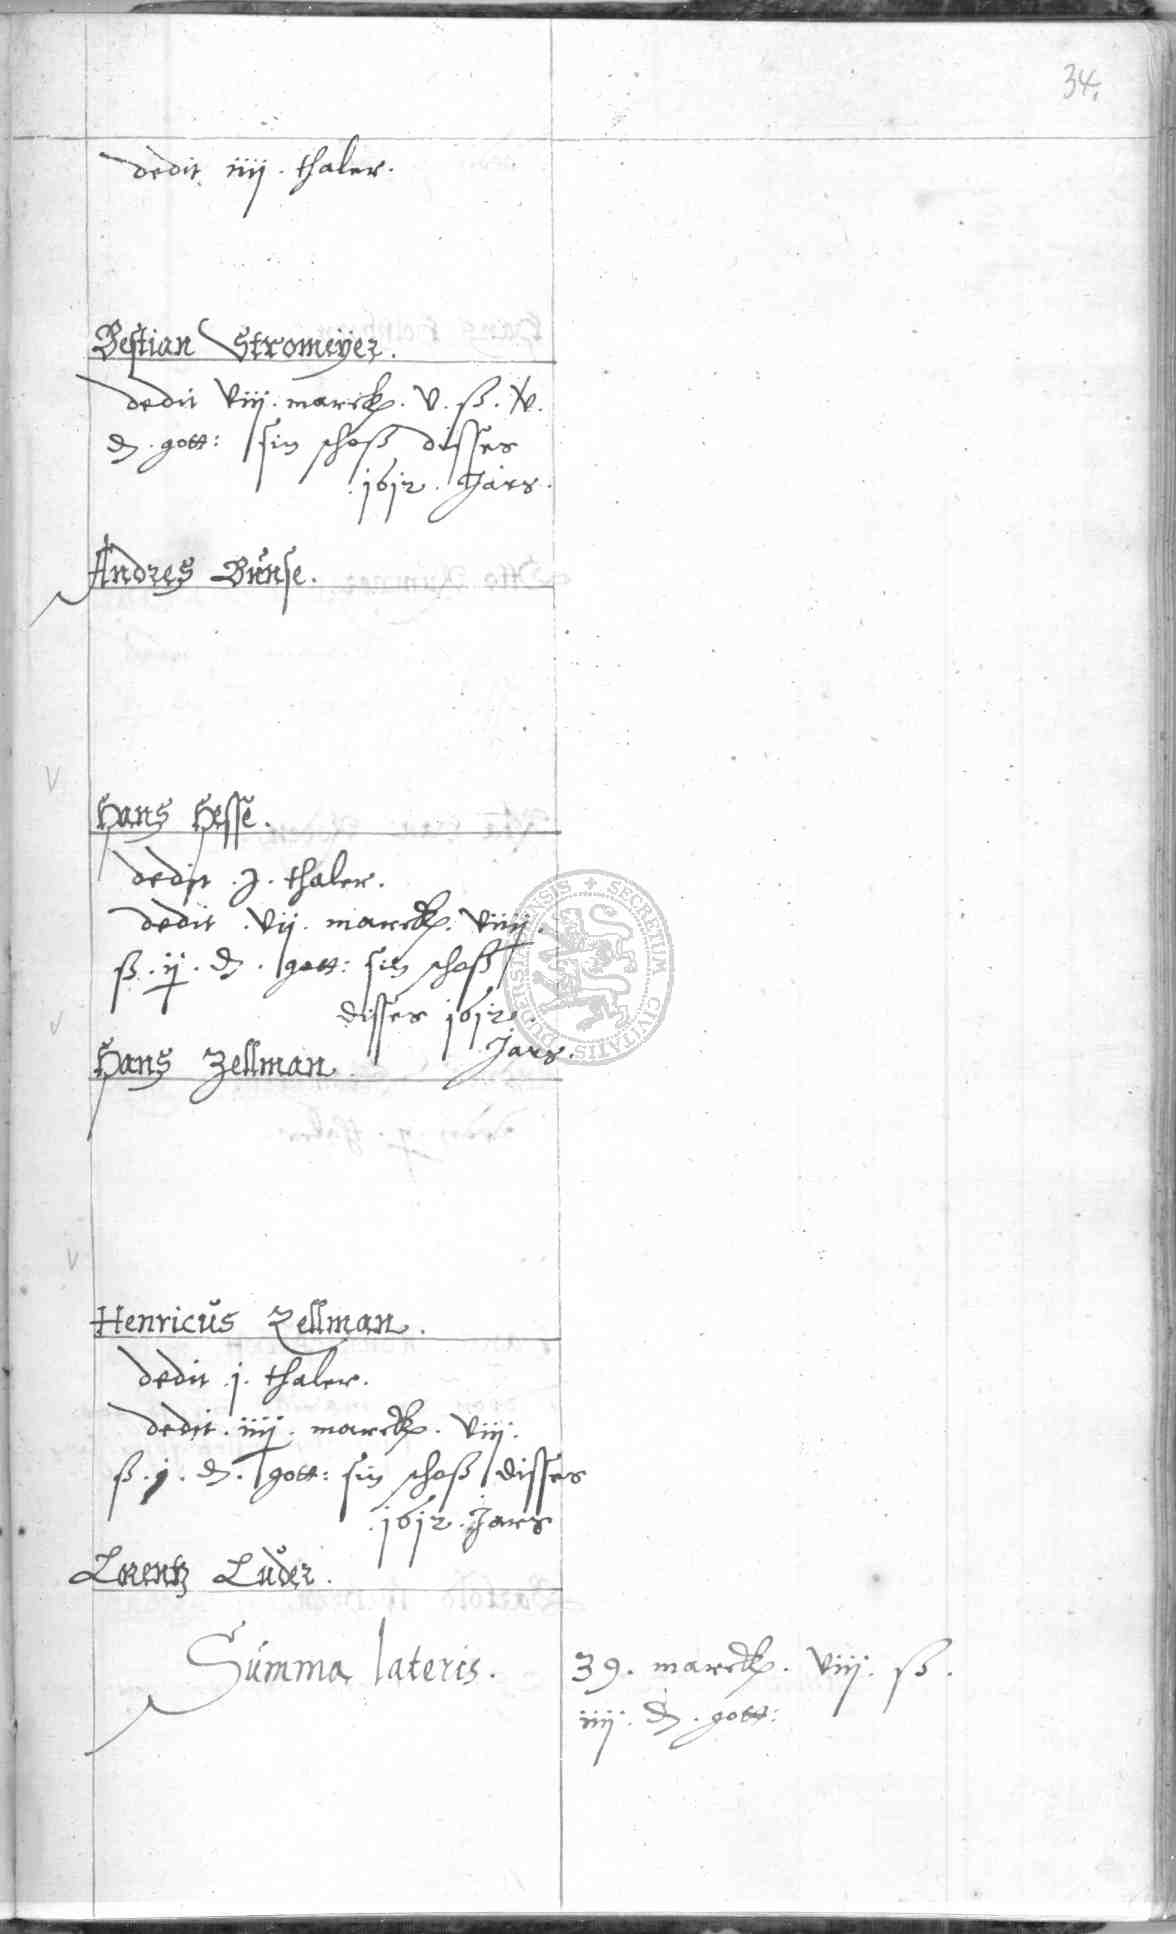 34.
dedit iiij. thaler.
Bestian Stromeÿer.
dedit viij. marck. v. ß. iv.
₰. gott: sin schoß disses
.1612. Jars.
Andres Bunse.
Hans Hesse.
dedit .j. thaler.
dedit .vij. marck. viiij.
ß. ij. ₰. gott: sin schoß
disses 1612.
Jars.
Hans Zellman.
Henricus Zellman.
dedit .j. thaler.
dedit .iiij. marck. viij.
ß. j. ₰. gott: sin schoß disses
.1612. Jars
Lorentz Luder.
Summa lateris. 39. marck. viij. ß.
iiij. ₰. gott:
SECRETUM CIVITATIS DUDERSTADENSIS